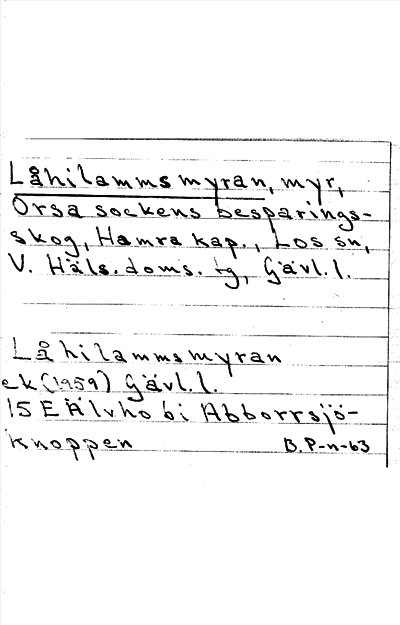 Låhilammsmyran, myr,
Orsa sockens besparings-
skog, Hamra kap., Los sn,
V. Häls. doms. tg, Gävl. l.
Låhilammsmyran
ek (1959) Gävl. l.
15 E Älvho bi Abborrsjö-
knoppen B. P-n-63